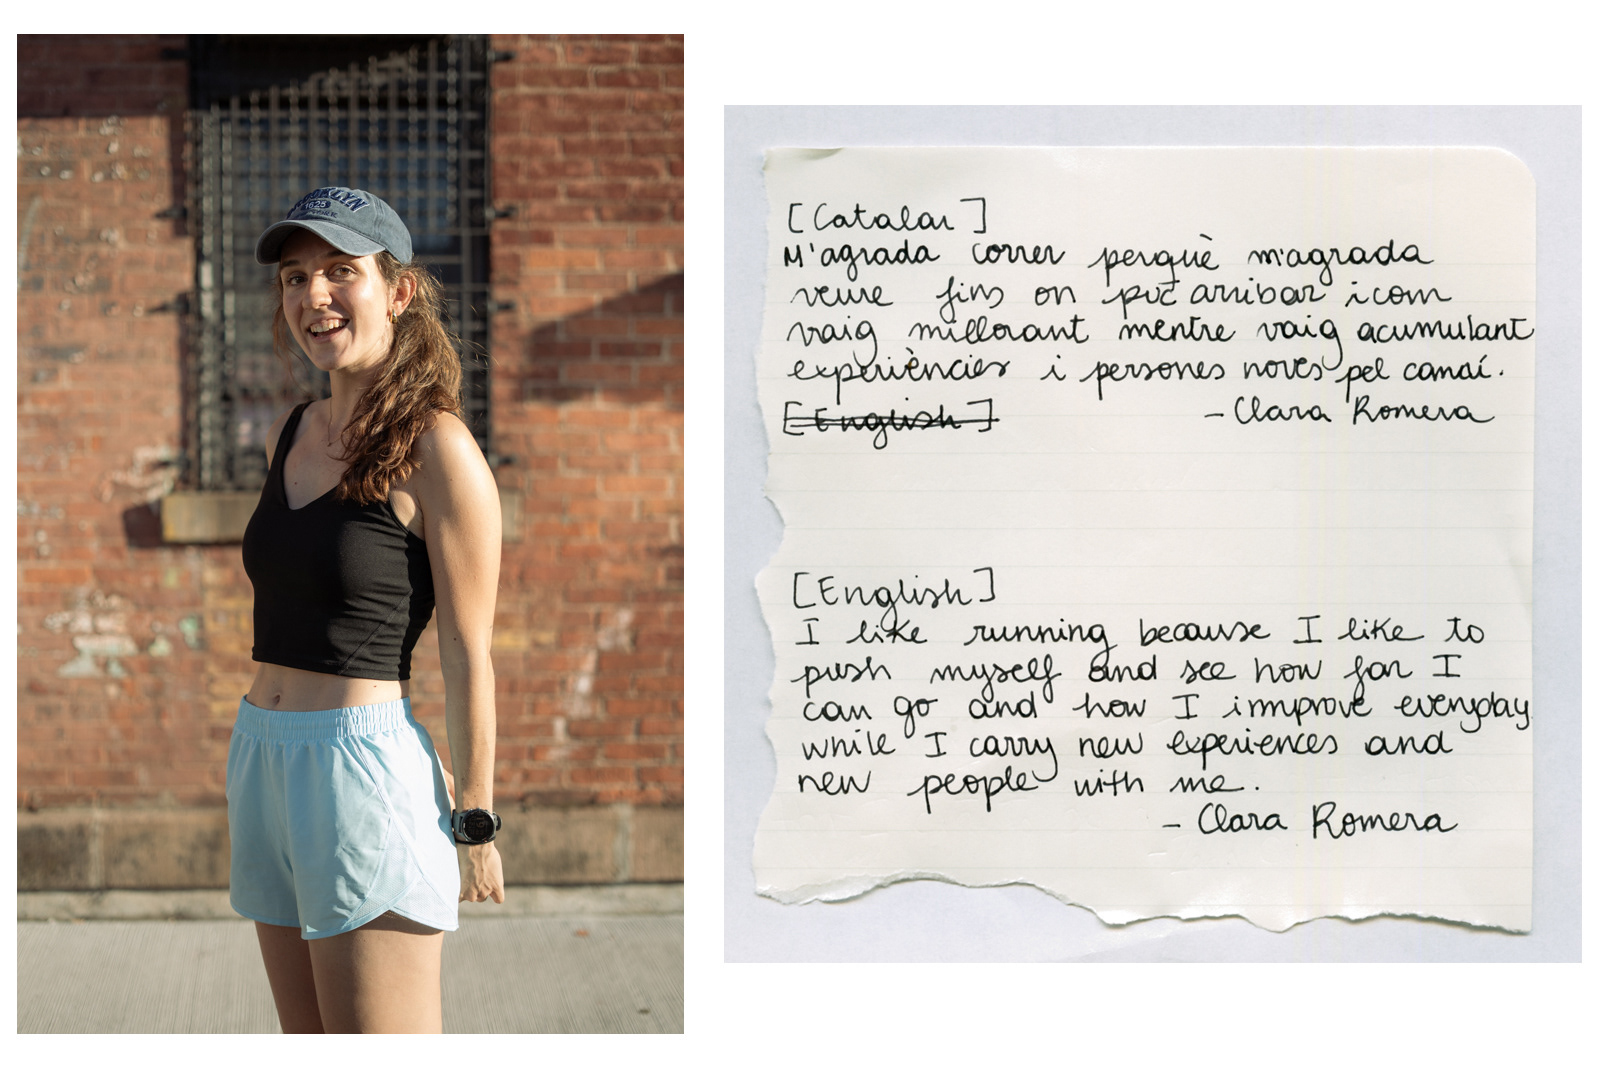 BROOKLYN
1625
[Catalan]
M'agrada correr perquè m'agrada
veure fins on puc arribar i com
vaig millorant mentre vaig acumulant
experiències i persones noves pel camaí.
- Clara Romera
[English]
[English]
I like running because I like to
push myself and see how far I
can go and how I improve everyday
while I carry new experiences and
new people with me.
- Clara Romera